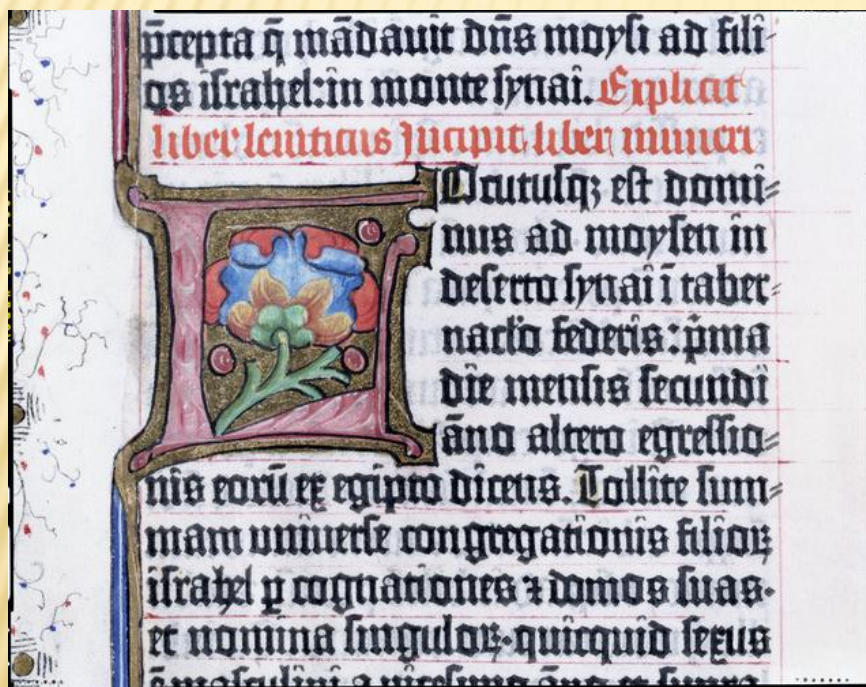 p̄cepta q̄ mādauit dn̄s moysi ad fili⸗
os israhel: in monte synai. Explicit
liber leuiticus Incipit liber numeri
LOcutusqꝫ est domi⸗
nus ad moysen in
deserto synai ī taber⸗
nac̄lo federis: p̄ma
die mensis secundi
āno altero egressio⸗
nis eorū ex egipto dicens. Tollite sum⸗
mam uniuerse congregationis filioꝝ
israhel ꝑ cognationes ⁊ domos suas.
et nomina singuloꝝ. quicquid sexus
ē masculini a uicesimo āno et supra